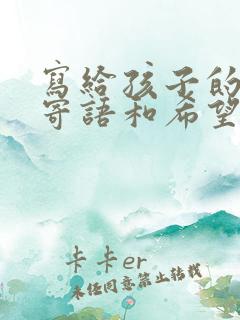 寫給孩子的
寄語和希望
卡卡er
未經同意禁止轉載